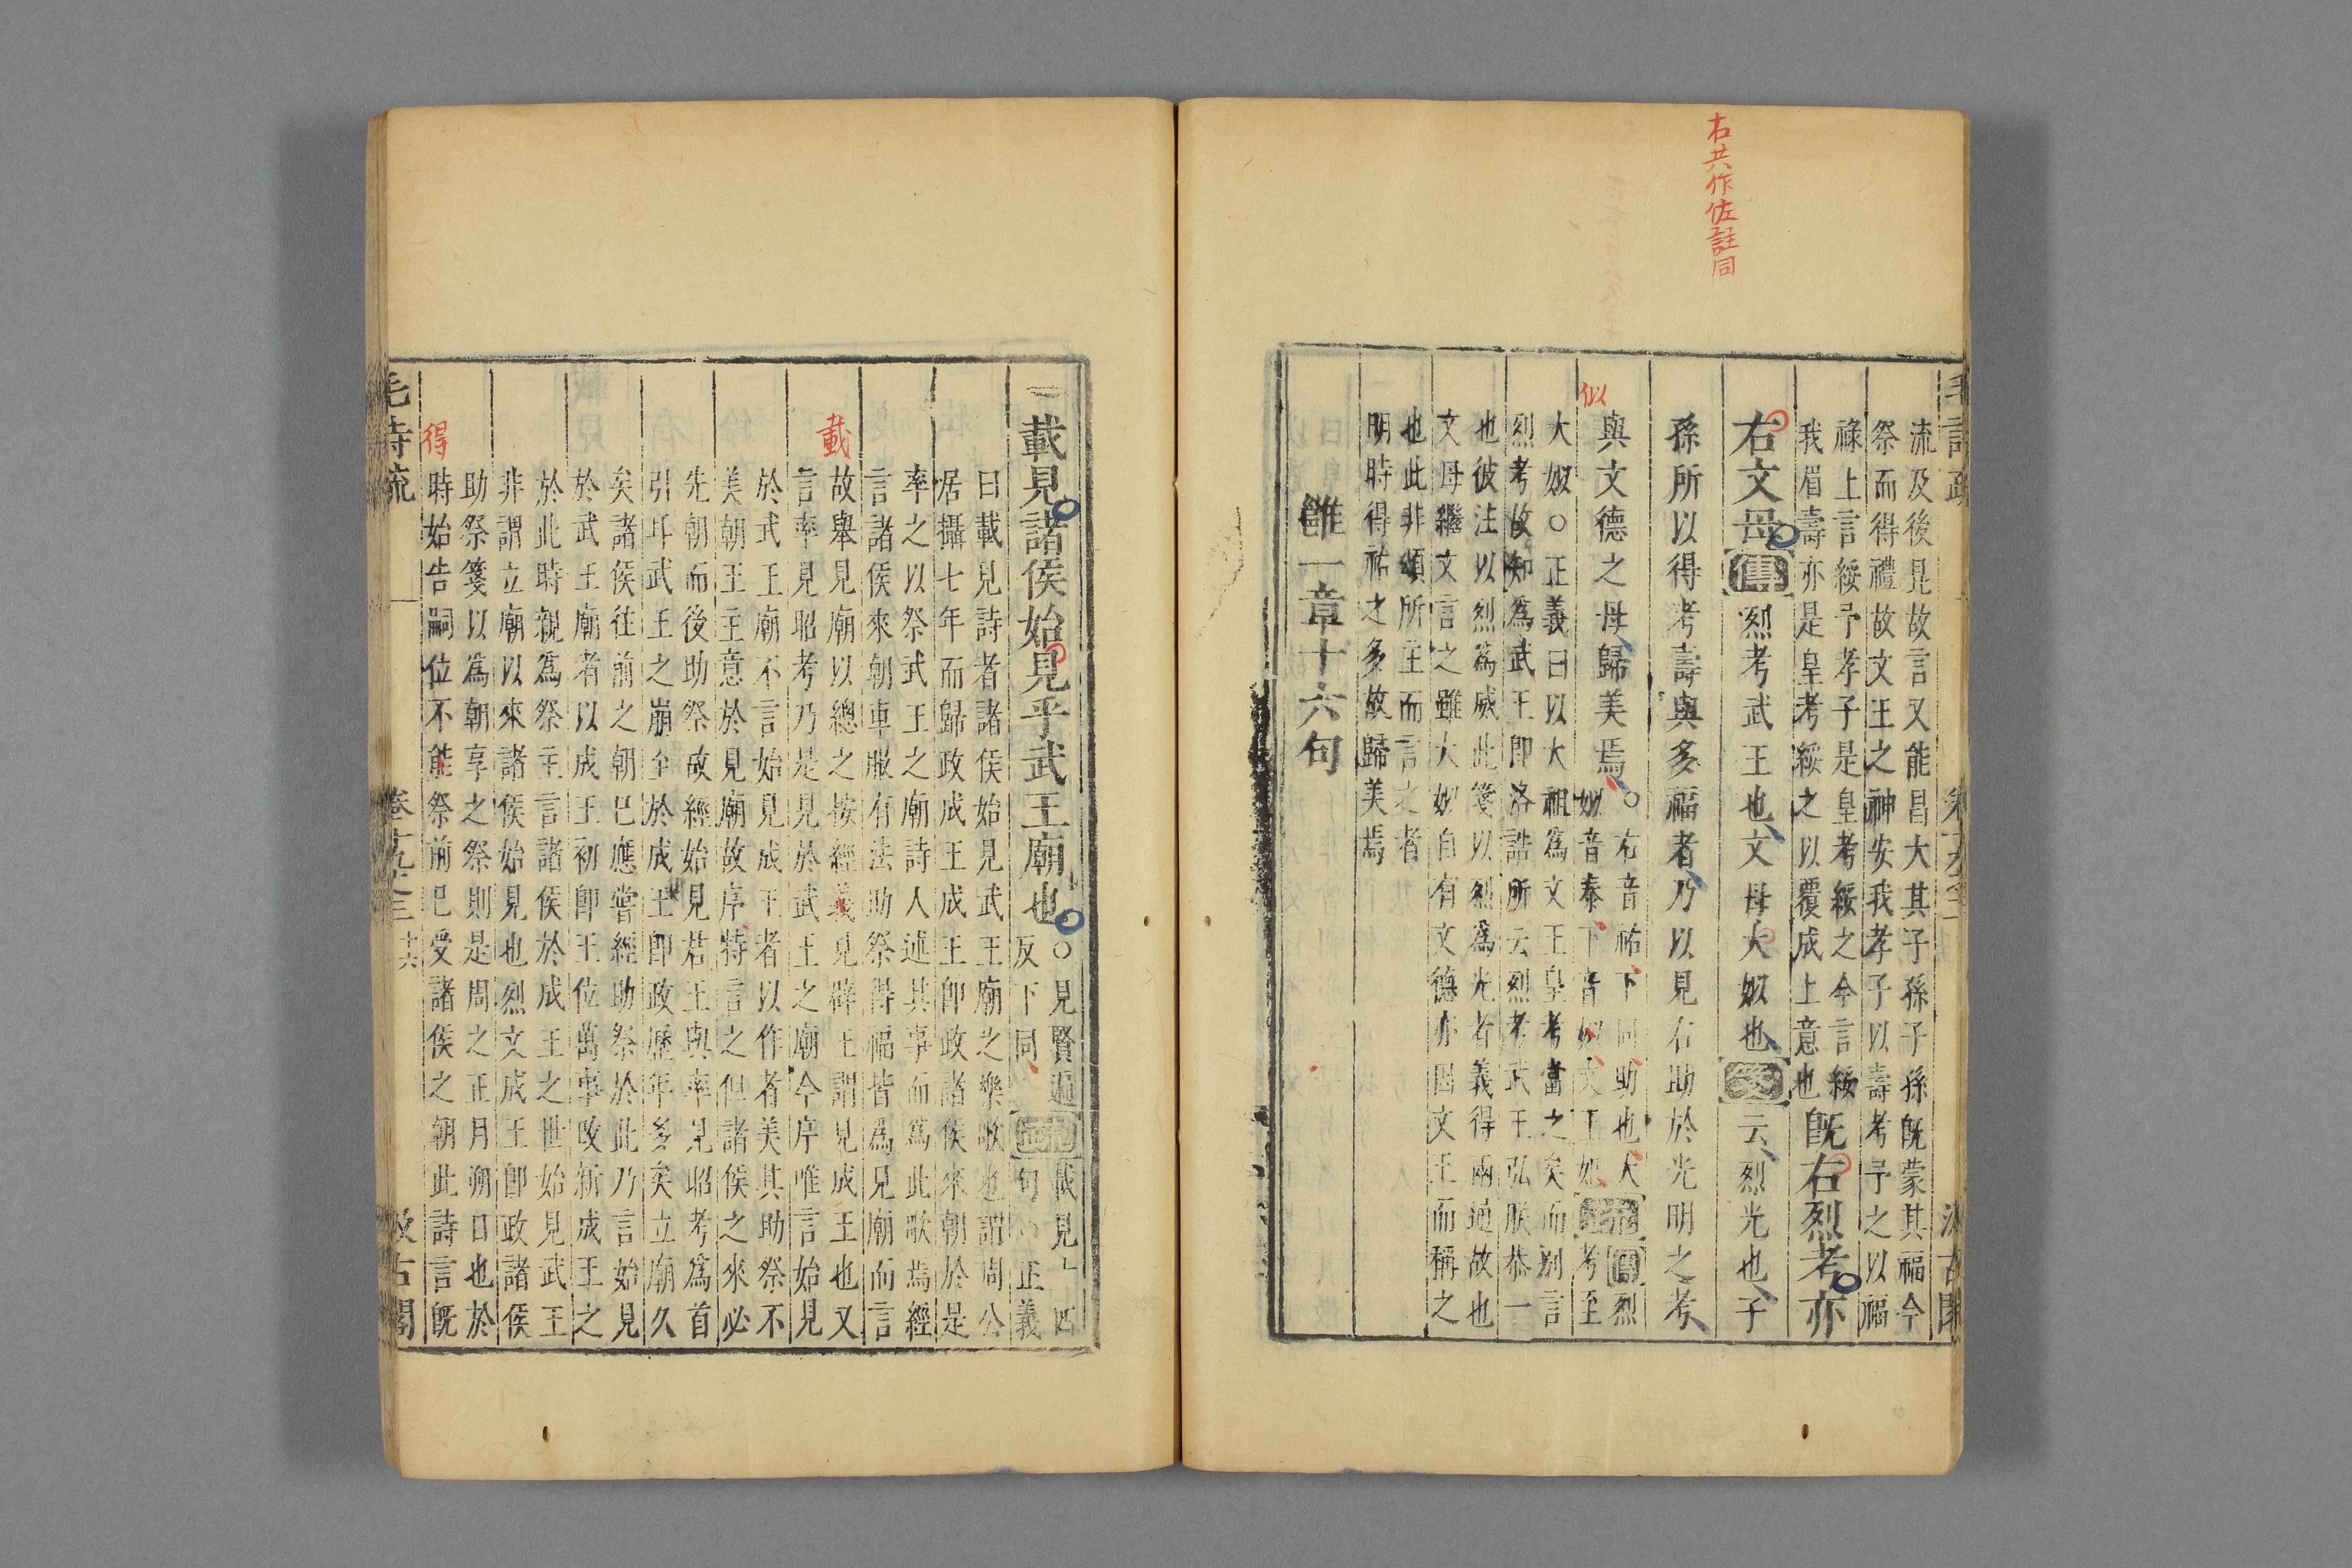 右共作佐註同
流及後昆故言又能昌大其子孫子孫既蒙其福今
祭而得禮故文王之神安我孝子以壽考予之以福
祿上言綏予孝子是皇考綏之今言綏
我眉壽亦是皇考綏之以覆成上意也
既右烈考亦
右文母傳烈考武王也文母大姒也箋云烈光也子
孫所以得考壽與多福者乃以見右助於光明之考
似
與文德之母歸美焉
○右音祐下同助也大
姒音泰下音姒文王妃
疏
傳烈
考至
大姒○正義曰以大祖為文王皇考當之矣而別言
烈考故知為武王即洛誥所云烈考武王弘朕恭一
也彼注以烈為威此箋以烈為光者義得兩通故也
文母繼文言之雖大姒自有文德亦因文王而稱之
也此非頌所主而言之者
明時得祐之多故歸美焉
雝一章十六句
載見諸侯始見乎武王廟也
○見賢遍
反下同
疏
載見
句○正義
曰載見詩者諸侯始見武王廟之樂歌也謂周公
居攝七年而歸政成王成王即政諸侯來朝於是
率之以祭武王之廟詩人述其事而為此歌焉經
言諸侯來朝車服有法助祭得福皆為見廟而言
載
故舉見廟以總之按經義見辟王謂見成王也又
言率見昭考乃是見於武王之廟今序唯言始見
於武王廟不言始見成王者以作者美其助祭不
美朝王主意於見廟故序特言之但諸侯之來必
先朝而後助祭故經始見君王與率見昭考為首
引耳武王之崩至於成王即政歷年多矣立廟久
矣諸侯往前之朝已應嘗經助祭於此乃言始見
於武王廟者以成王初即王位萬事改新成王之
於此時親為祭主言諸侯於成王之世始見武王
非謂立廟以來諸侯始見也烈文成王即政諸侯
助祭箋以為朝享之祭則是周之正月朔日也於
得
時始告嗣位不能祭前已受諸侯之朝此詩言既
毛詩疏